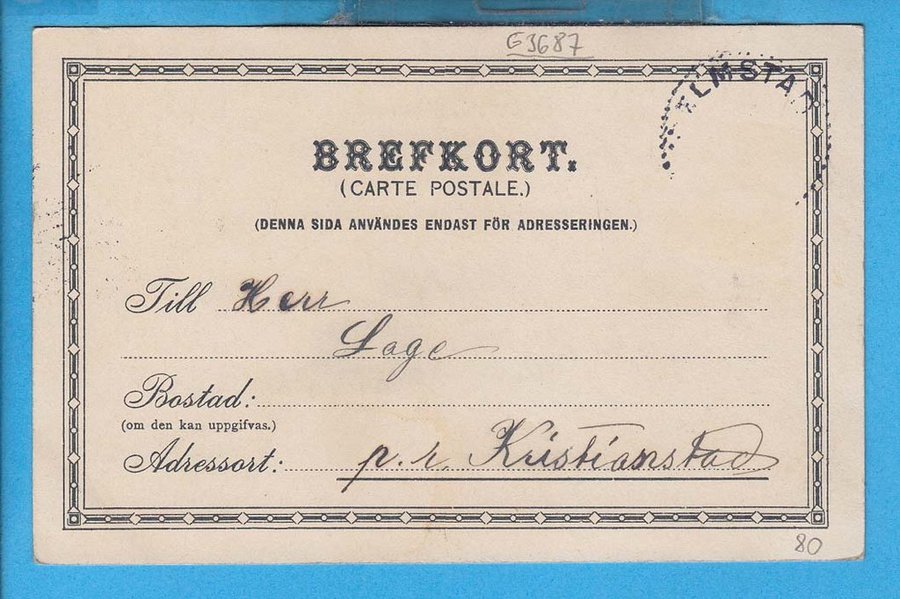 G3687
ALMSTAD
BREFKORT.
(CARTE POSTALE.)
(DENNA SIDA ANVÄNDES ENDAST FÖR ADRESSERINGEN.)
Till Herr
Lage
Bostad:
(om den kan uppgifvas.)
Adressort: p. r. Kristianstad
80